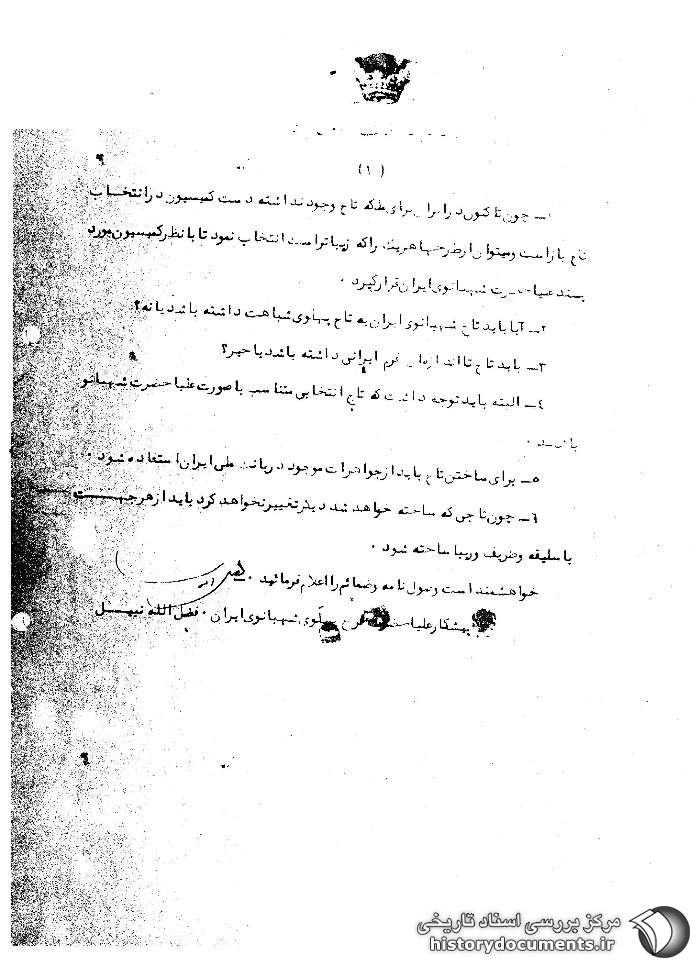 (۱)
۱ــ چون تاکنون در ایران برای ملکه تاج وجود نداشته دست کمیسیون در انتخاب
تاج باز است و میتوان از طرحها هریک را که زیباتر است انتخاب نمود تا با نظر کمیسیون مورد
پسند علیاحضرت شهبانوی ایران قرار گیرد .
۲ــ آیا باید تاج شهبانوی ایران به تاج پهلوی شباهت داشته باشد یا نه ؟
۳ــ باید تاج تا اندازه‌ای فرم ایرانی داشته باشد یا خیر ؟
۴ــ البته باید توجه داشت که تاج انتخابی متناسب با صورت علیاحضرت شهبانو
باشد .
۵ــ برای ساختن تاج باید از جواهرات موجود در بانک ملی ایران استفاده شود .
۶ــ چون تاجی که ساخته خواهد شد دیگر تغییر نخواهد کرد باید از هر جهت
با سلیقه و ظریف و زیبا ساخته شود .
خواهشمند است وصول نامه و ضمائم را اعلام فرمائید .
پیشکار علیاحضرت فرح پهلوی شهبانوی ایران . فضل الله نبیل
مرکز بررسی اسناد تاریخی
historydocuments.ir